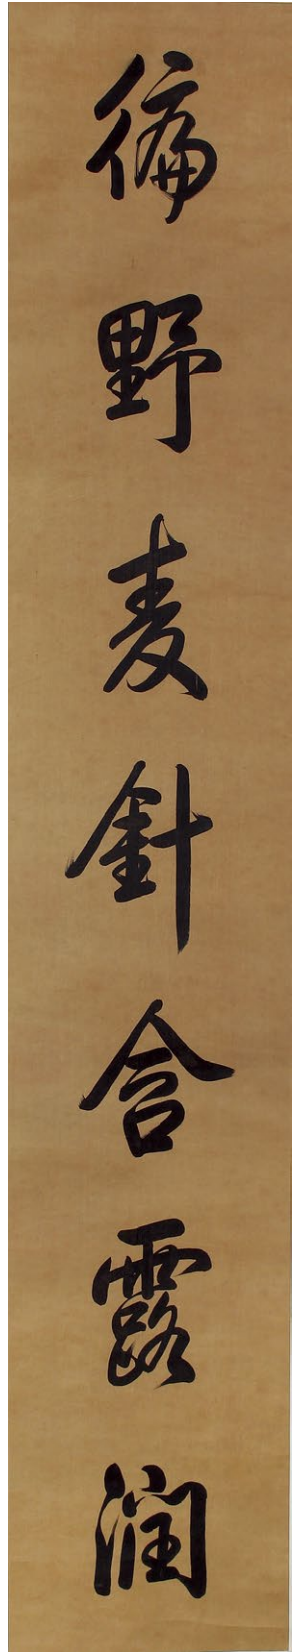 徧野麦針含露潤